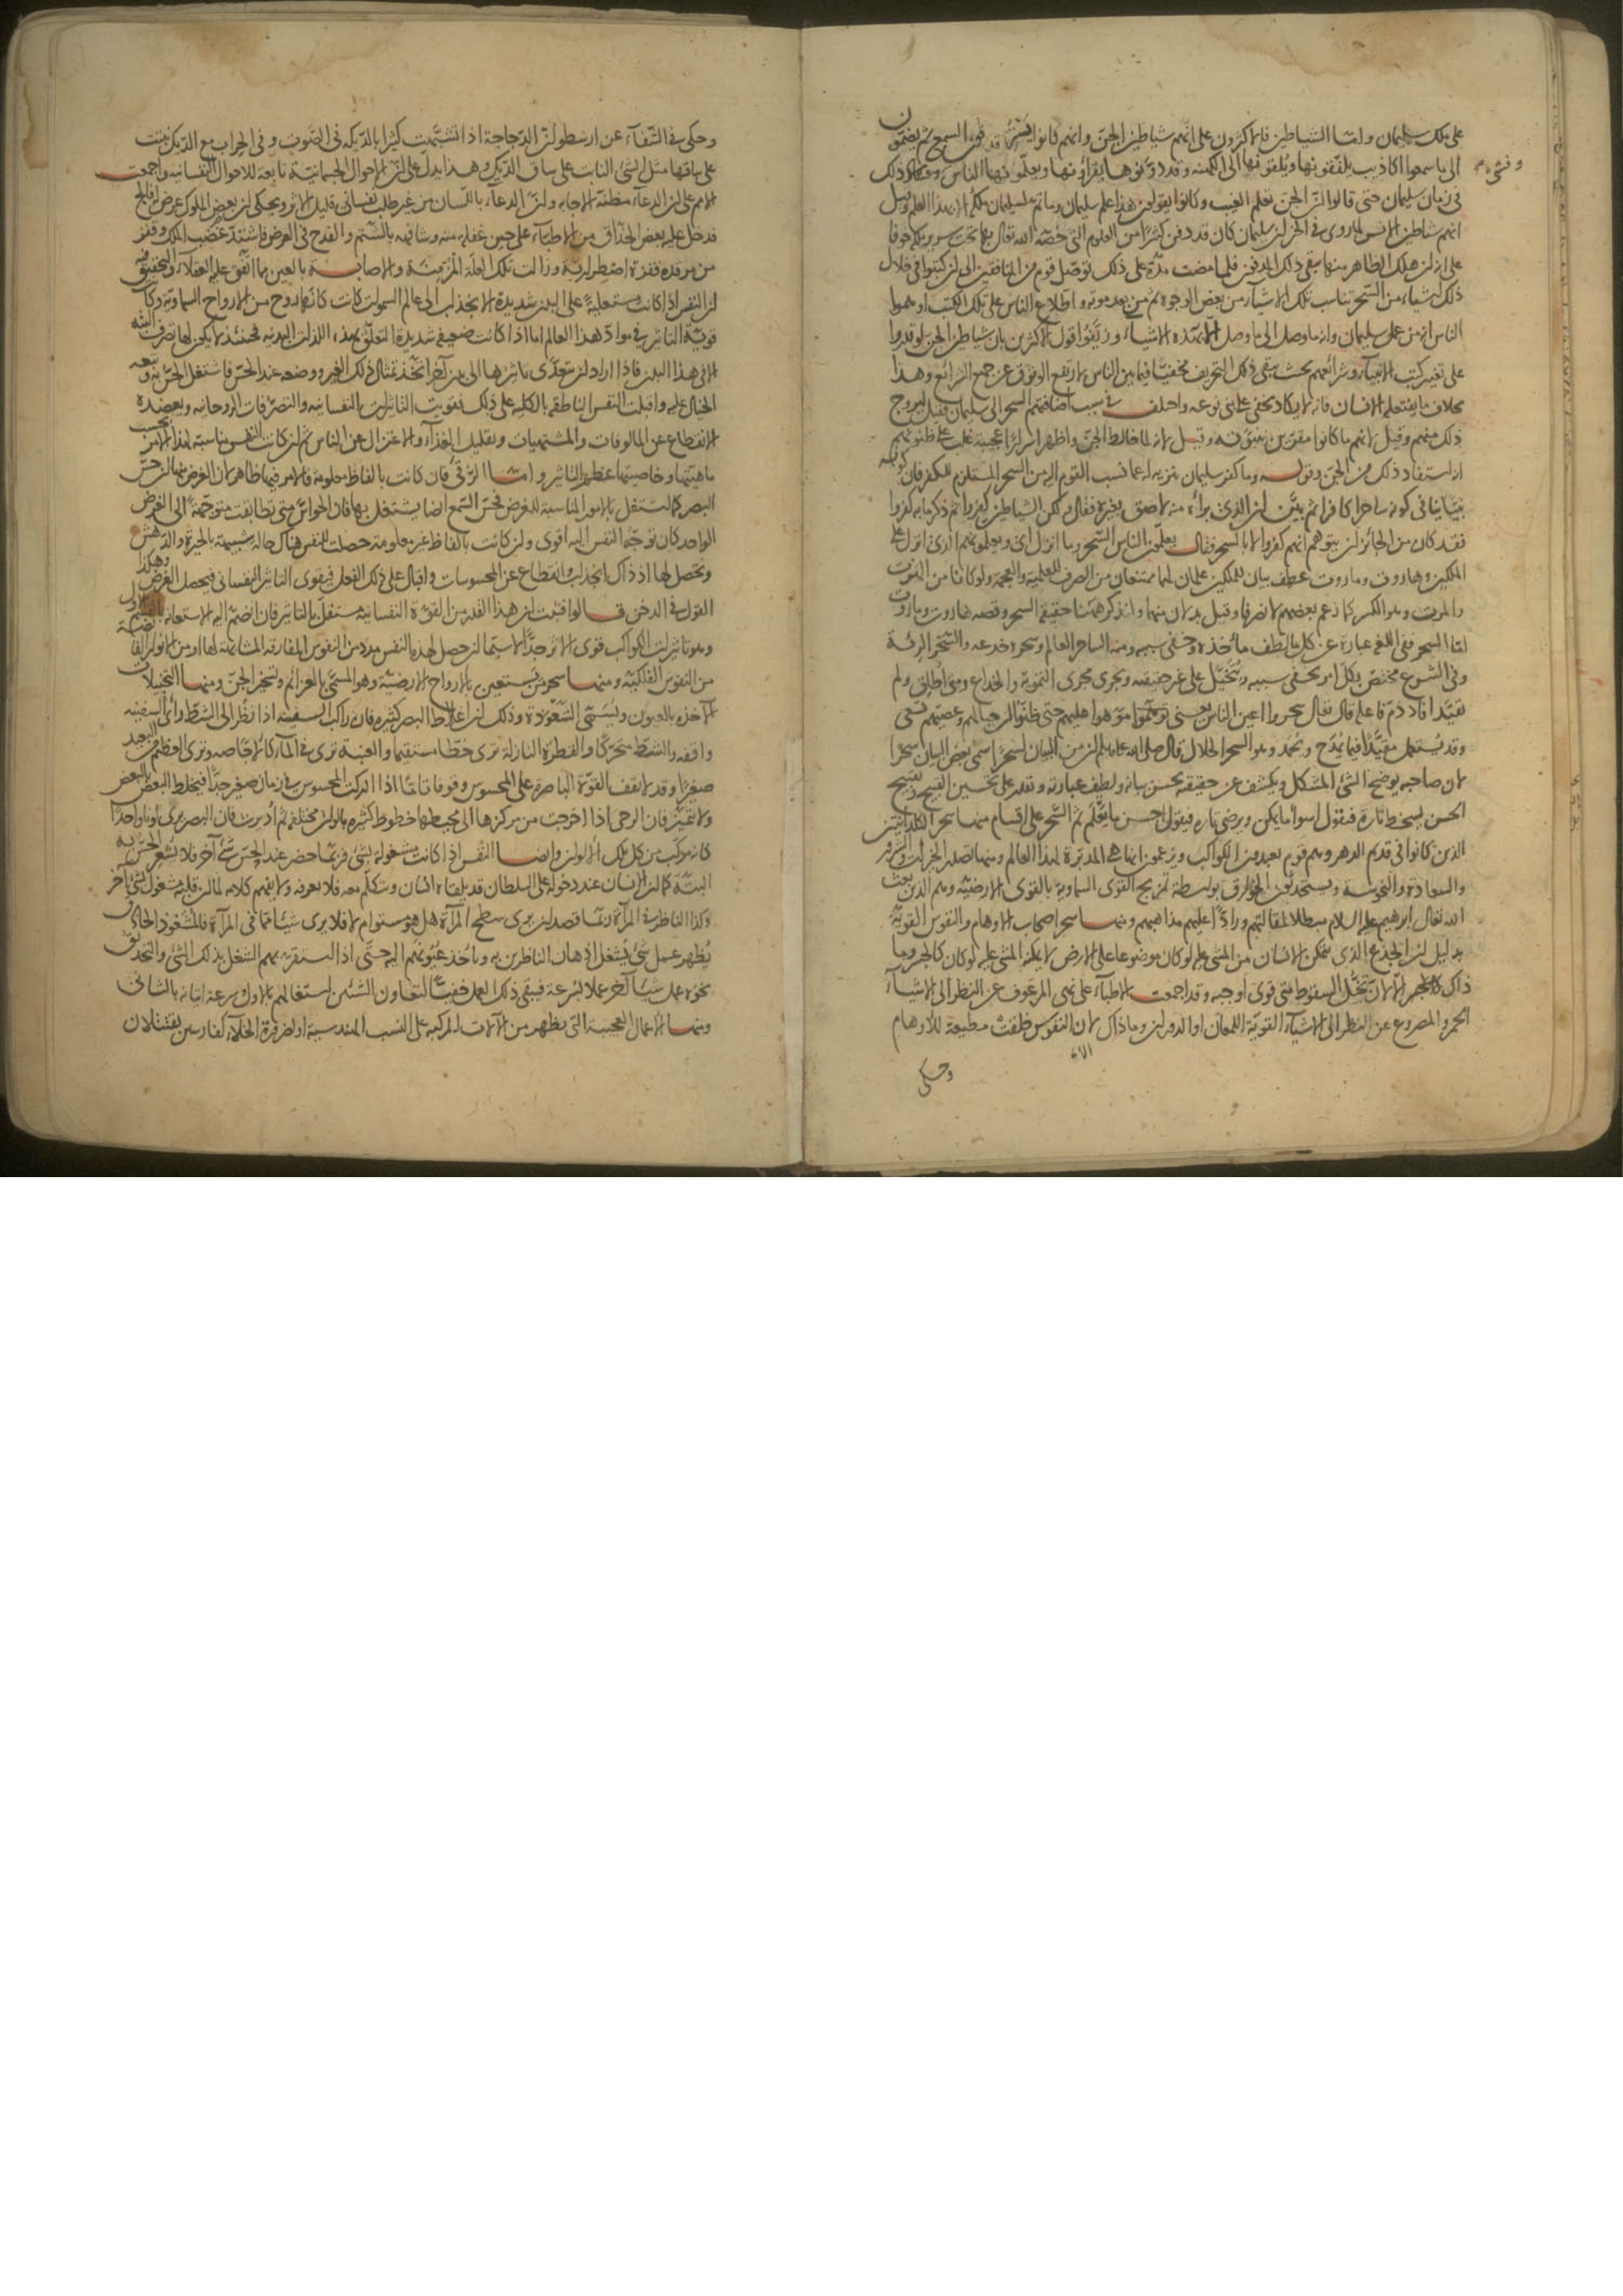 على ملك سليمان واما الشياطين فالاكثرون على انهم شياطين الجن وانهم كانوا يسترقون السمع ثم يضمون
الى ما سمعوا اكاذيب يلفقونها ويلقونها الى الكهنة وقد دونوها يقرأونها ويعلمونها الناس وفشى ذلك
في زمان سليمان حتى قالوا ان الجن تعلم الغيب وكانوا يقولون هذا علم سليمان وما تم لسليمان ملكه الا بهذا العلم وقيل
انهم شياطين الانس لما روى في الخبر ان سليمان كان قد دفن كثيرا من العلوم التي خصه الله تعالى بها تحت سرير ملكه خوفا
على انه ان هلك الظاهر منها يبقى ذلك المدفون فلما مضت مدة على ذلك توصل قوم من المنافقين الى ان كتبوا في خلال
ذلك اشياء من السحر تناسب تلك الاشياء من بعض الوجوه ثم من بعد موته واطلاع الناس على تلك الكتب اوهموا
الناس انه من عمل سليمان وانه ما وصل الى ما وصل الا بهذه الاشياء وزيفوا قول الاكثرين بان شياطين الجن لو قدروا
على تغيير كتب الانبياء وشرائعهم بحيث يبقى ذلك التحريف مخفيا فيما بين الناس لارتفع الوثوق عن جميع الشرائع وهذا
بخلاف ما يفتعله الانسان فانه لا يكاد يخفى على بني نوعه واختلف في سبب اضافتهم السحر الى سليمان فقيل ليروج
ذلك منهم وقيل لانهم ما كانوا مقرين بنبوته وقيل لانه لما خالط الجن واظهر اسرارا عجيبة غلب على ظنونهم
انه استفاد ذلك من الجن وقوله وما كفر سليمان تنزيه له عما نسب القوم اليه من السحر المستلزم للكفر فان كونه
نبيا ينافي كونه ساحرا كافرا ثم بين ان الذي برأه منه لاصق بغيره فقال ولكن الشياطين كفروا ثم ذكر ما به كفروا
فقد كان من الجائز ان يتوهم انهم كفروا لا بالسحر فقال يعلمون الناس السحر وما انزل اي ويعلمونهم الذي انزل على
الملكين وهاروت وماروت عطف بيان للملكين علمان لهما ممتنعان من الصرف للعلمية والعجمة ولو كانا من الهرت
والمرت وهو الكسر كما زعم بعضهم لانصرفا وقيل بدلان منهما ولنذكر ههنا حقيقة السحر وقصة هاروت وماروت
اما السحر ففي اللغة عبارة عن كل ما لطف مأخذه وخفي سببه ومنه الساحر العالم وسحره خدعه والسحر الرئة
وفي الشرع مختص بكل امر يخفى سببه ويتخيل على غير حقيقته ويجري مجرى التمويه والخداع ومتى اطلق ولم
يقيد افاد ذم فاعله قال تعالى سحروا اعين الناس يعني موهوا عليهم حتى ظنوا ان حبالهم وعصيهم تسعى
وقد يستعمل مقيدا فيما يمدح ويحمد وهو السحر الحلال قال صلى الله عليه وسلم ان من البيان لسحرا سمى بعض البيان سحرا
لان صاحبه يوضح الشئ المشكل ويكشف عن حقيقته بحسن بيانه ولطيف عبارته ويقدر على تحسين القبيح وتقبيح
الحسن يسخط تارة فيقول اسوأ ما يمكن ويرضى تارة فيقول احسن ما يعلم ثم السحر على اقسام منها سحر الكلدانيين
الذين كانوا في قديم الدهر وهم قوم يعبدون الكواكب ويزعمون انها هي المدبرة لهذا العالم ومنها تصدر الخيرات والشرور
والسعادة والنحوسة ويستحدثون الخوارق بواسطة تمزيج القوى السماوية بالقوى الارضية وهم الذين بعث
الله تعالى ابرهيم عليه السلام مبطلا لمقالتهم ورادا عليهم مذاهبهم ومنها سحر اصحاب الاوهام والنفوس القوية
بدليل ان الجذع الذي يتمكن الانسان من المشي عليه لو كان موضوعا على الارض لا يمكنه المشي عليه لو كان كالجسر وما
ذاك الا لان تخيل السقوط متى قوى اوجبه وقد اجمعت الاطباء على نهي المرعوف عن النظر الى الاشياء
الحمر والمصروع عن النظر الى الاشياء القوية اللمعان او الدوران وما ذاك الا لان النفوس خلقت مطيعة للاوهام
وحكى
وحكى في الشفاء عن ارسطو ان الدجاجة اذا تشبهت كثيرا بالديكة في الصوت وفي الحراب مع الديكة نبت
على ساقها مثل الشئ النابت على ساق الديك وهذا يدل على ان الاحوال الجسمانية تابعة للاحوال النفسانية واجمعت
الامم على ان الدعاء مظنة الاجابة وان الدعاء باللسان من غير طلب نفساني قليل الاثر ويحكى ان بعض الملوك عرض له فالج
فدخل عليه بعض الحذاق من الاطباء على حين غفلة منه وشافهه بالشتم والقدح في العرض فاشتد غضب الملك وقفز
من مرقده قفزة اضطرارية وزالت تلك العلة المزمنة والاصابة بالعين مما اتفق عليه العقلاء والتحقيق فيه
ان النفس اذا كانت مستعلية على البدن شديدة الانجذاب الى عالم السموات كانت كانها روح من الارواح السماوية وكانت
قوية التاثير في مواد هذا العالم اما اذا كانت ضعيفة شديدة التعلق بهذه اللذات البدنية فحينئذ لا يكون لها تصرف البتة
الا في هذا البدن فاذا اراد ان يتعدى تاثيرها الى بدن آخر اتخذ تمثال ذلك الغير ووضعه عند الحس فاشتغل الحس به وتبعه
الخيال عليه واقبلت النفس الناطقة بالكلية على ذلك فقويت التاثيرات النفسانية والتصرفات الروحانية ويعضده
الانقطاع عن المألوفات والمشتهيات وتقليل الغذاء والاعتزال عن الناس ثم ان كانت النفس مناسبة لهذا الامر بحسب
ماهيتها وخاصيتها عظم التاثير واما الرقى فان كانت بالفاظ معلومة فالامر فيها ظاهر لان الغرض منها ان حس
البصر كما اشتغل بالامور المناسبة للغرض فحس السمع ايضا يشتغل بها فان الحواس متى تطابقت متوجهة الى الغرض
الواحد كان توجه النفس اليه اقوى وان كانت بالفاظ غير معلومة حصلت للنفس هناك حالة شبيهة بالحيرة والدهش
ويحصل لها اذ ذاك انجذاب وانقطاع عن المحسوسات واقبال على ذلك الفعل فيقوى التاثير النفساني فيحصل الغرض وهكذا
القول في الدخن قالوا فثبت ان هذا القدر من القوة النفسانية مستقل بالتاثير فان انضم اليه الاستعانة بالقسم الاول
وهو تاثيرات الكواكب قوى الاثر جدا لا سيما ان حصل لهذه النفس مدد من النفوس المفارقة المشابهة لها او من الانوار الفائضة
من النفوس الفلكية ومنها سحر من يستعين بالارواح الارضية وهو المسمى بالعزائم وتسخير الجن ومنها التخييلات
الآخذة بالعيون ويسمى الشعوذة وذلك ان اغلاط البصر كثيرة فان راكب السفينة اذا نظر الى الشط رأى السفينة
واقفة والشط متحركا والقطرة النازلة ترى خطا مستقيما والعنبة ترى في الماء كالاجاصة وترى العظيم من البعيد
صغيرا وقد لا تقف القوة الباصرة على المحسوس وقوفا تاما اذا ادركت المحسوس في زمان صغير جدا فيخلط البعض بالبعض
ولا يتميز فان الرحى اذا اخرجت من مركزها الى محيطها خطوط كثيرة بالوان مختلفة ثم اديرت فان البصر يرى لونا واحدا
كانه مركب من كل تلك الالوان وايضا النفس اذا كانت مشغولة بشئ فربما حضر عند الحس شئ آخر فلا يشعر الحس به
البتة كما ان الانسان عند دخوله على السلطان قد يلقاه انسان ويتكلم معه فلا يعرفه ولا يفهم كلامه لما ان قلبه مشغول بشئ آخر
وكذا الناظر في المرآة ربما قصد ان يرى سطح المرآة هل هو مستو ام لا فلا يرى شيئا مما في المرآة فالمشعوذ الحاذق
يظهر عمل شئ يشغل اذهان الناظرين به ويأخذ عيونهم اليه حتى اذا استغرقهم الشغل بذلك الشئ والتحديق
نحوه عمل شيئا آخر عملا بسرعة فيبقى ذلك العمل خفيا لتعاون الشيئين اشتغالهم بالاول وسرعة اتيانه بالثاني
ومنها الاعمال العجيبة التي تظهر من الآلات المركبة على النسب الهندسية او لضرورة الخلاء كفارسين يقتتلان